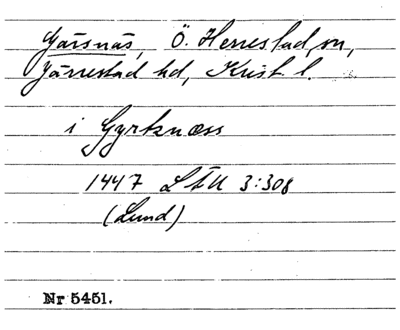 Gärsnäs, Ö. Herrestad sn,
Järrestad hd, Krist. l.
i Gyrknæss
1447 LÄU 3:308
(Lund)
Nr 5451.